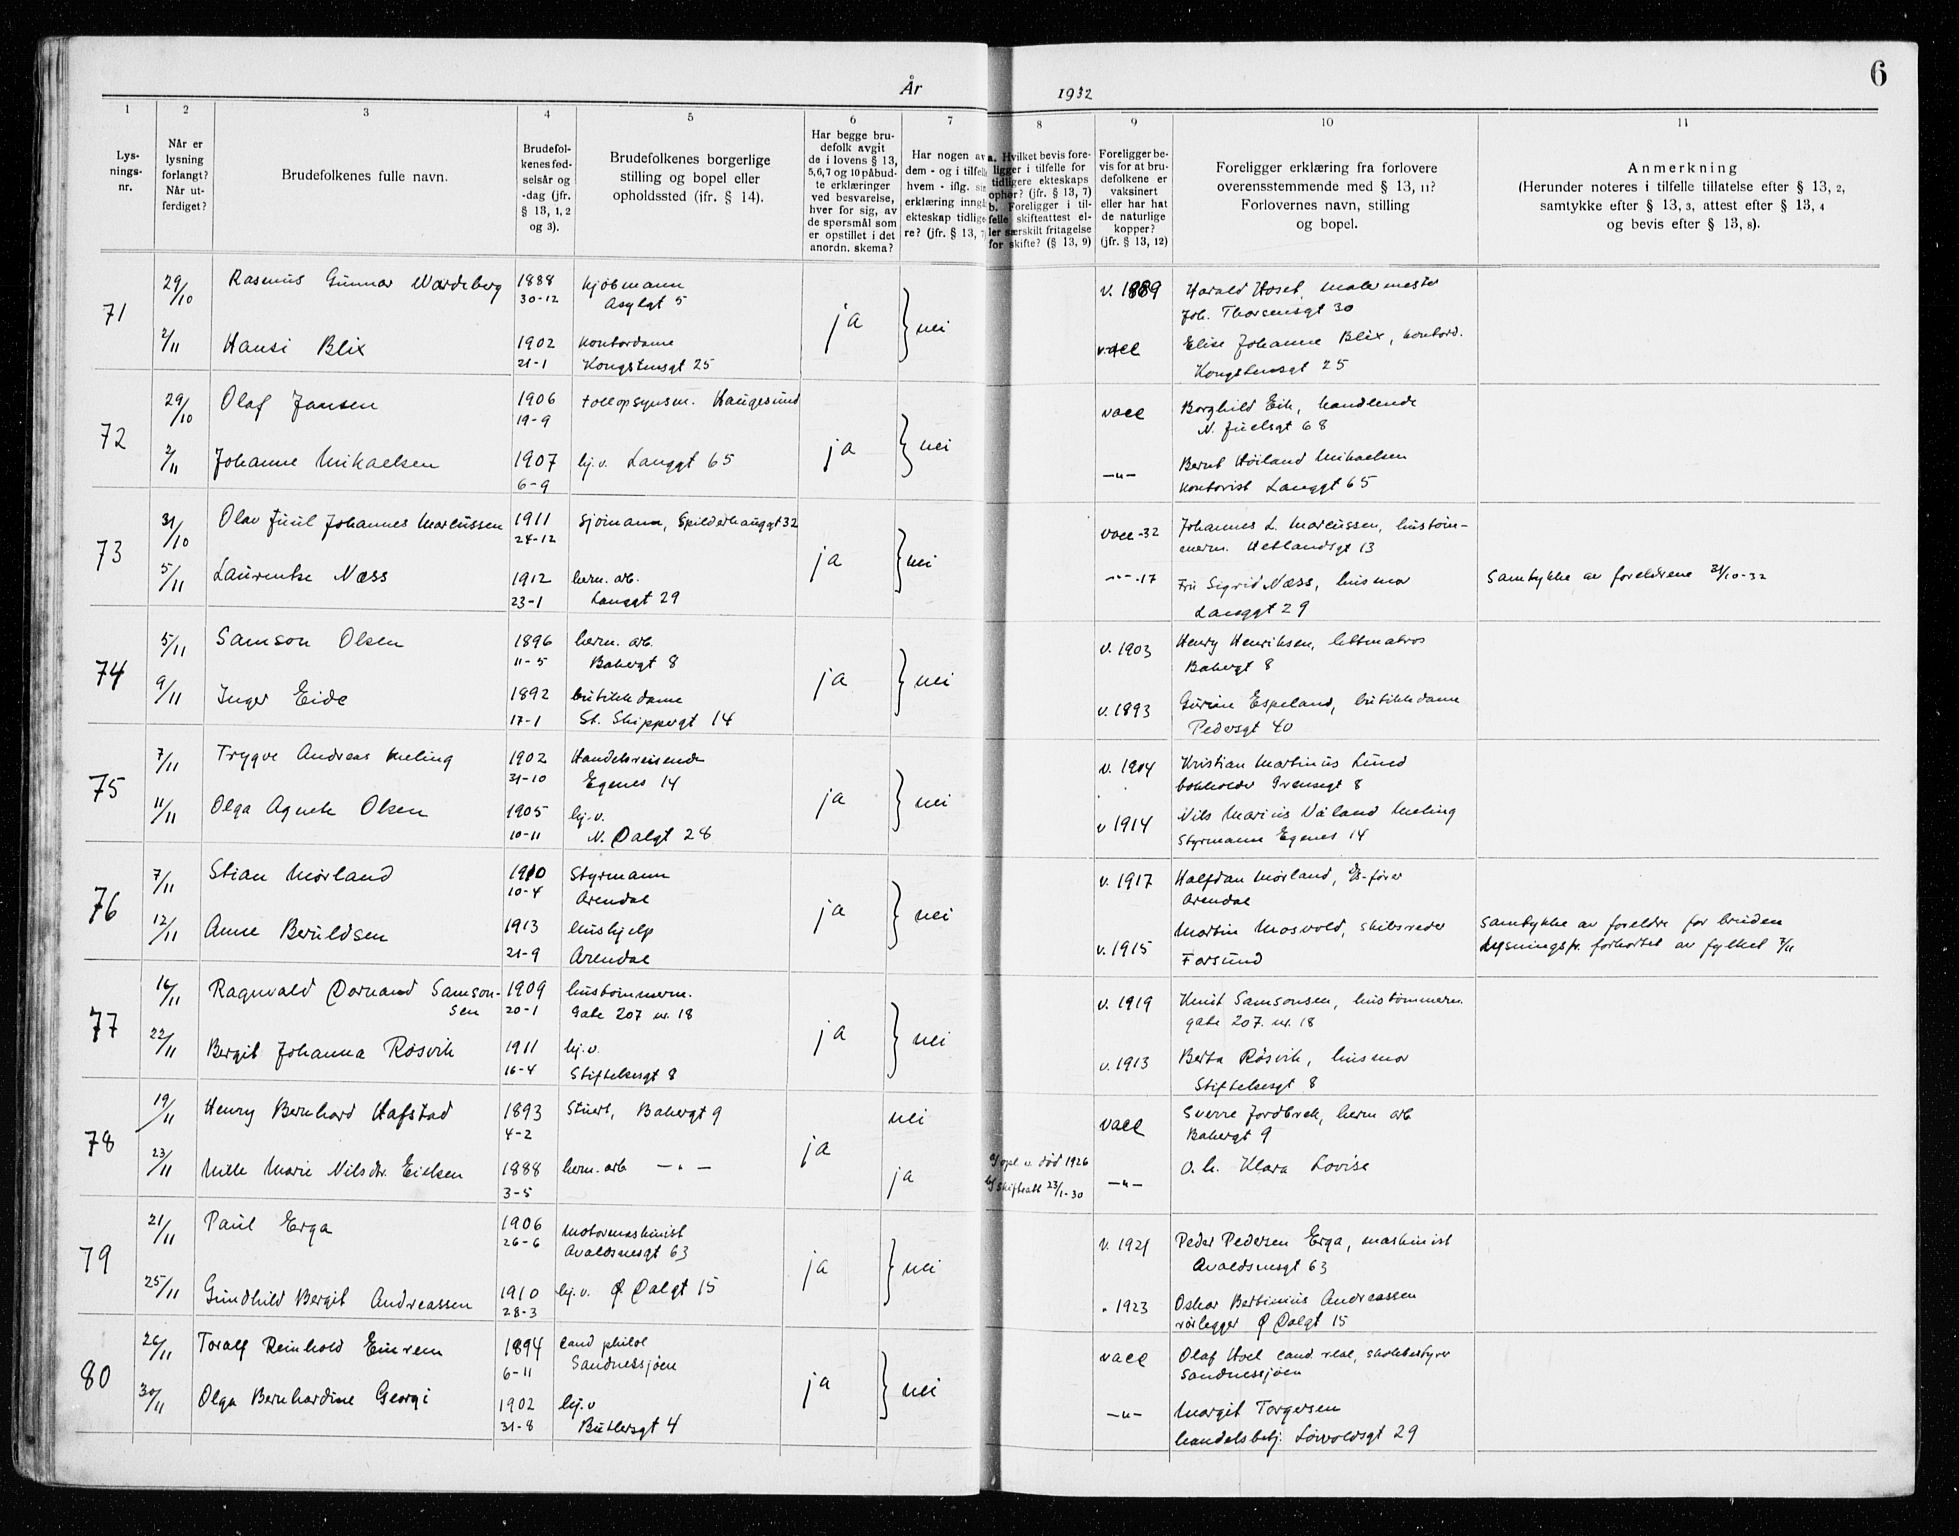 6
År 1932
1 2 3 4 5 6 7 8 9 10 11
Lys-
nings-
nr.
Når er
lysning
forlangt?
Når ut-
ferdiget?
Brudefolkenes fulle navn.
Brudefol-
kenes fød-
selsår og
-dag (jfr.
§ 13, 1, 2
og 3).
Brudefolkenes borgerlige
stilling og bopel eller
opholdssted (jfr. § 14).
Har begge bru-
defolk avgit
de i lovens § 13,
5,6,7 og 10 påbud-
te erklæringer
ved besvarelse,
hver for sig, av
de spørsmål som
er opstillet i det
anordn. skema?
Har nogen av
dem - og i tilfelle
hvem - iflg. sin
erklæring inngå
ekteskap tidlige-
re? (jfr. § 13, 7
a. Hvilket bevis fore-
ligger i tilfelle for
tidligere ekteskaps
ophør? (jfr. § 13, 7)
b. Foreligger i til-
felle skifteattest el-
ler særskilt fritagelse
for skifte? (§ 13, 9)
Foreligger be-
vis for at bru-
defolkene er
vaksinert
eller har hat
de naturlige
kopper?
(jfr. § 13, 12)
Foreligger erklæring fra forlovere
overensstemmende med § 13, 11?
Forlovernes navn, stilling
og bopel.
Anmerkning
(Herunder noteres i tilfelle tillatelse efter § 13, 2,
samtykke efter § 13, 3, attest efter § 13, 4
og bevis efter § 13, 8).
71 29/10 Rasmus Gunnar Wardeberg 1888 kjøbmann ja nei v. 1889 Harald Hoset, malermester
30-12 Asylgt 5 Joh. Thorsensgt 30
2/11 Hansi Blix 1902 kontordame vacc Elise Johanne Blix, kontord.
21-1 Kongstensgt 25 Kongstensgt 25
72 29/10 Olaf Jansen 1906 tollopsynsm. Haugesund ja nei vacc Borghild Eik, handlende
19-9 N. Juelsgt 68
2/11 Johanne Mikaelsen 1907 hj.v. Langgt 65 —"— Bernt Høiland Mikaelsen
6-9 kontorist Langgt 65
73 31/10 Olav Juul Johannes Marcussen 1911 sjømann, Spilderhauggt 32 ja nei vacc -32 Johannes L. Marcussen, hustøm-
24-12 merm. Hetlandsgt 13
5/11 Laurentse Næss 1912 herm. arb. -"- -17 Fru Sigrid Næss, husmor Samtykke av foreldrene 31/10-32
23-1 Langgt 29 Langgt 29
74 5/11 Samson Olsen 1896 herm. arb. ja nei v. 1903 Henry Henriksen, lettmatros
11-5 Bakergt 8 Bakergt 8
9/11 Inger Eide 1892 butikkdame v. 1893 Gurine Espeland, butikkdame
17-1 St. Skippergt 14 Pedersgt 40
75 7/11 Trygve Andreas Meling 1902 Handelsreisende ja nei v. 1904 Kristian Martinius Lund
31-10 Egenes 14 bokholder Grensegt 8
11/11 Olga Agnete Olsen 1905 hj.v. v 1914 Nils Marius Våland Meling
10-11 N. Dalgt 28 Styrmann Egenes 14
76 7/11 Stian Mørland 1910 Styrmann ja nei v. 1917 Halfdan Mørland,
10-4 Arendal Arendal
12/11 Anne Beruldsen 1913 hushjelp v. 1915 Martin Mosvold, skibsreder Samtykke av foreldre for bruden
21-9 Arendal Farsund Lysningsfr. forkortet av fylket 7/11
77 16/11 Ragnvald Dørnand Samson- 1909 hustømmerm. ja nei v. 1919 Knut Samsonsen, hustømmerm.
sen 20-1 Gate 207 nr. 18 gate 207. nr. 18
22/11 Bergit Johanna Røsvik 1911 hj.v. v. 1913 Berta Røsvik, husmor
16-4 Stiftelsesgt 8 Stiftelsesgt 8
78 19/11 Henry Bernhard Hafstad 1893 Stuert, Bakergt 9 ja nei vacc Sverre Jordbrek, herm arb
4-2 Bakergt 9
23/11 Mille Marie Nilsdtr. Eielsen 1888 herm. arb —"— ja a/ opl. v. død 1926 —"— O. h. Klara Lovise
3-5 b/ Skifteatt 23/1-30
79 21/11 Paul Erga 1906 Motormaskinist ja nei v. 1921 Peder Pedersen Erga, maskinist
26-6 Avaldsnesgt 63 Avaldsnesgt 63
25/11 Gundhild Bergit Andreassen 1910 hj.v. Ø Dalgt 15 " 1923 Oskar Bertinius Andreassen
28-3 rørlegger Ø Dalgt 15
80 26/11 Toralf Reinhold Einrem 1894 cand philol ja nei vacc Olaf Hoel cand. real, skolebestyrer
6-11 Sandnessjøen Sandnessjøen
30/11 Olga Bernhardine Georgi 1902 hj.v —"— Margit Torgersen
31-8 Butlersgt 4 handelsbetj. Løvvoldsgt 29